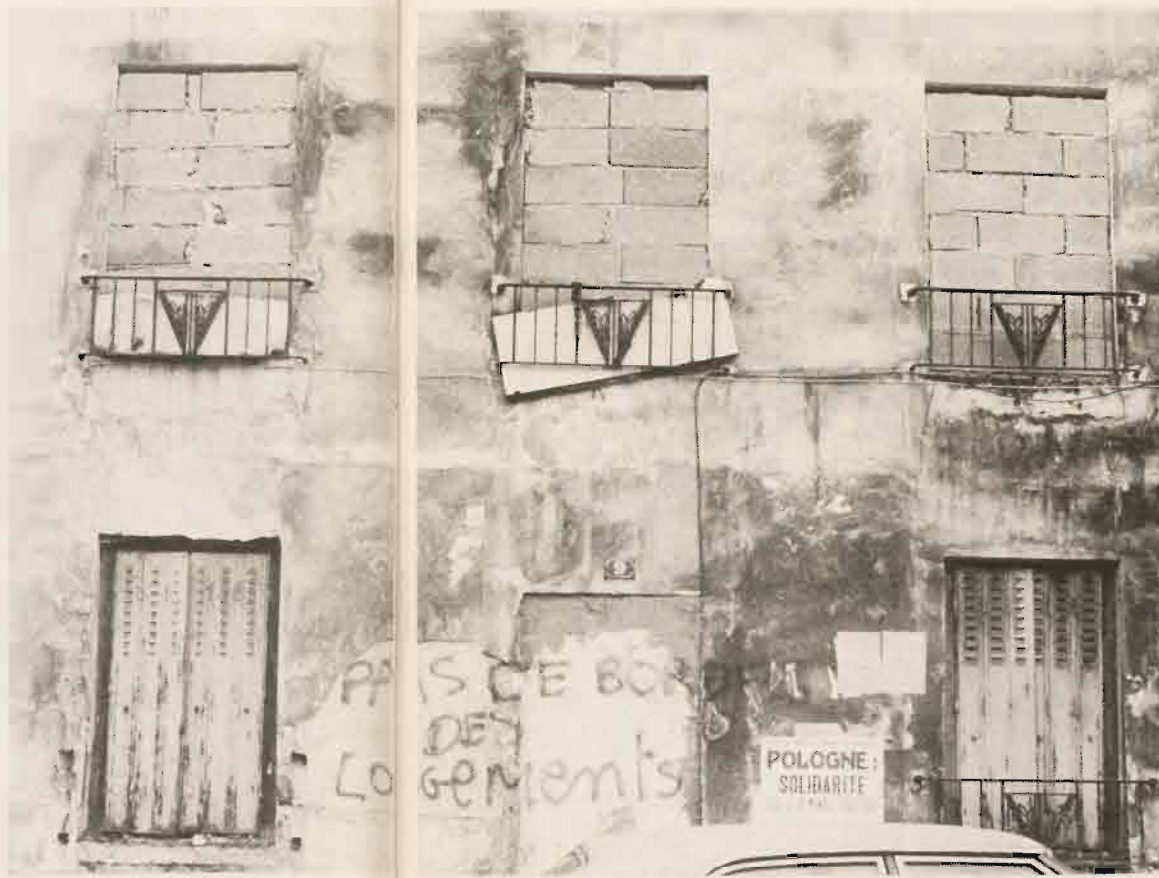 PAS DE BOR
DES
LOGEMENTS
POLOGNE:
SOLIDARITE